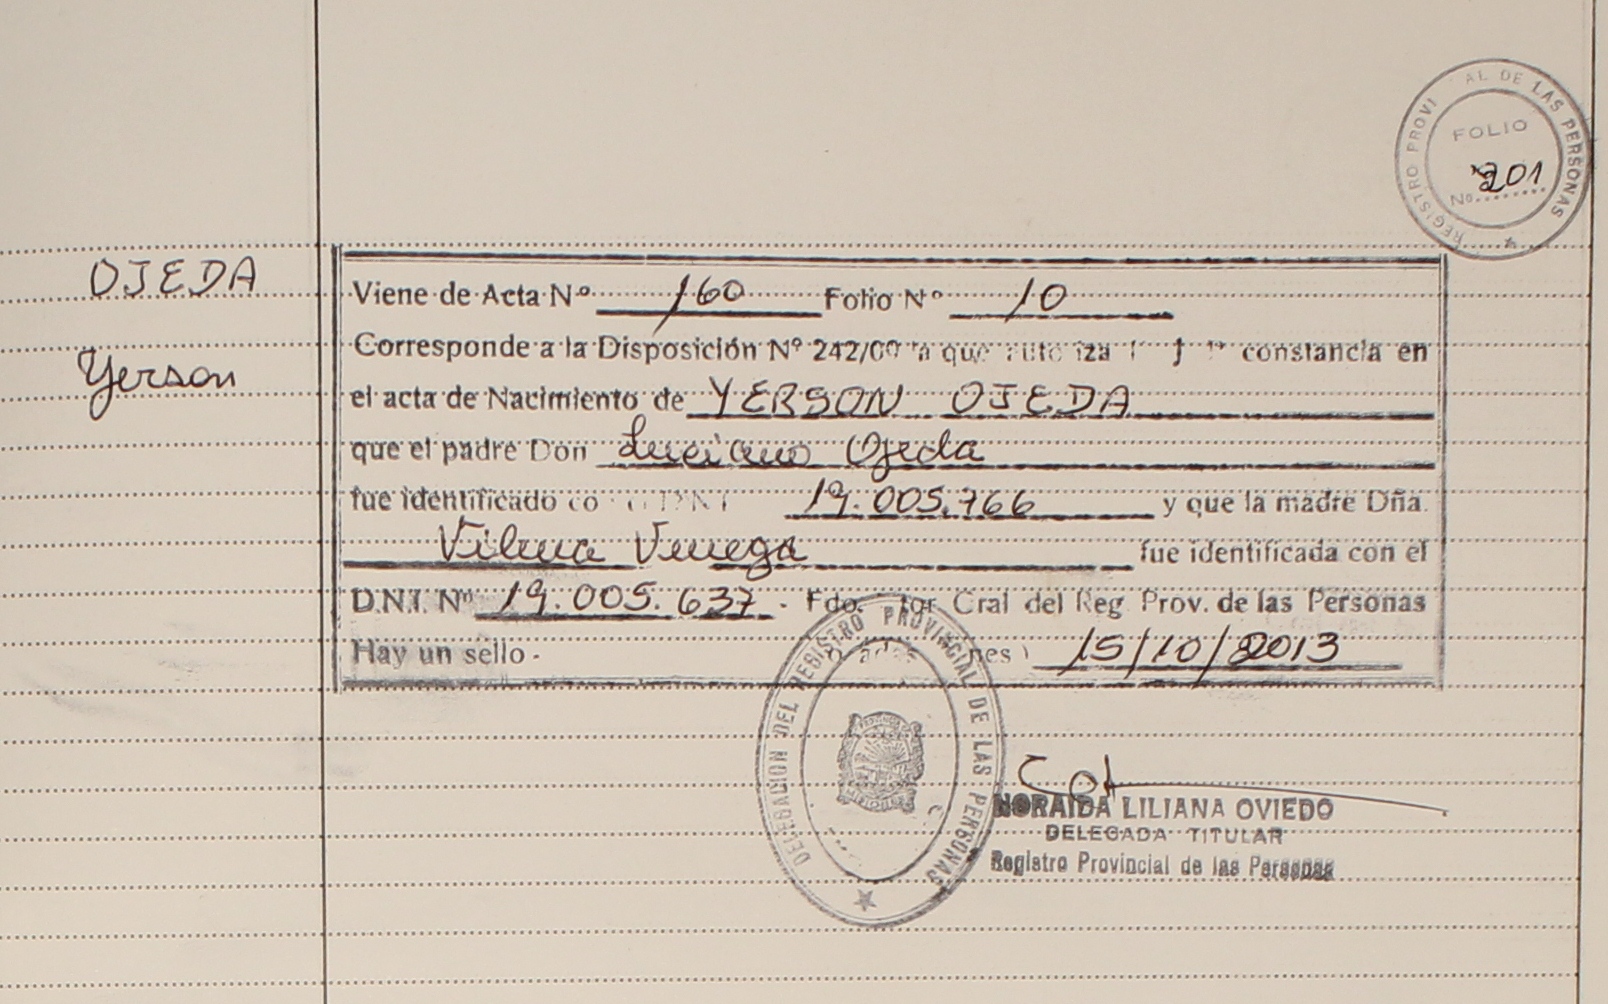 REGISTRO PROVI AL DE LAS PERSONAS
FOLIO
Nº 201
OJEDA
Yerson
Viene de Acta Nº 160 Folio Nº 10
Corresponde a la Disposición Nº 242/00 a que autoriza constancia en
el acta de Nacimiento de YERSON OJEDA
que el padre Don Luciano Ojeda
fue identificado co D.N.I 19.005.766 y que la madre Dña.
Vilma Venega fue identificada con el
D.N.I. Nº 19.005.637 - Fdo. tor Cral del Reg Prov. de las Personas
Hay un sello - 15/10/2013
DELEGACION DEL REGISTRO PROVINCIAL DE LAS PERSONAS
NORAIDA LILIANA OVIEDO
DELEGADA TITULAR
Registro Provincial de las Personas